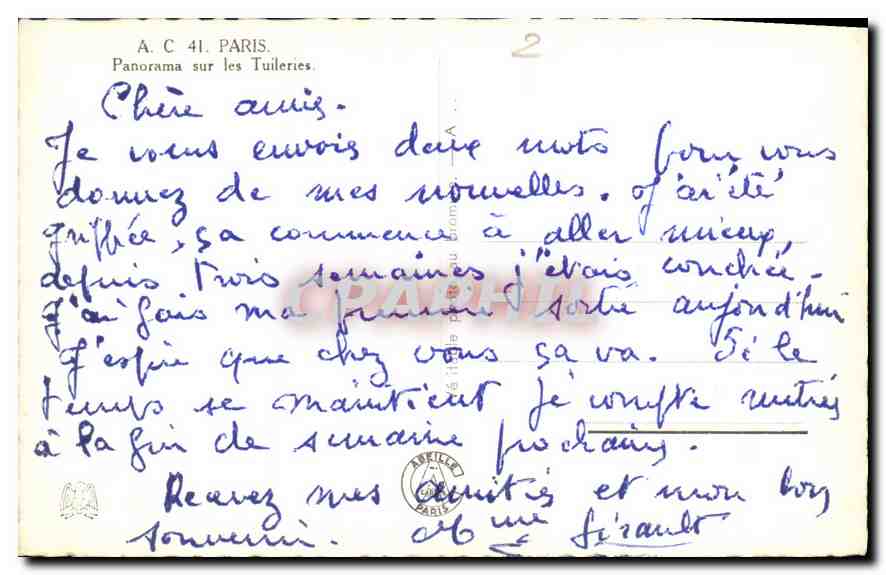 A. C 41. PARIS.
Panorama sur les Tuileries.
2
Chère amie.
Je vous envois deux mots pour vous
donnez de mes nouvelles. J'ai été
grippée, ça commence à aller mieux,
depuis trois semaines j'étais couchée.
J'ai fais ma première sortie aujourd'hui
J'espère que chez vous ça va. Si le
temps se maintient je compte rentrés
à la fin de semaine prochaine.
Recevez mes amitiés et mon bon
souvenir. Mme Girault
CPARHTL
ABEILLE
PARIS